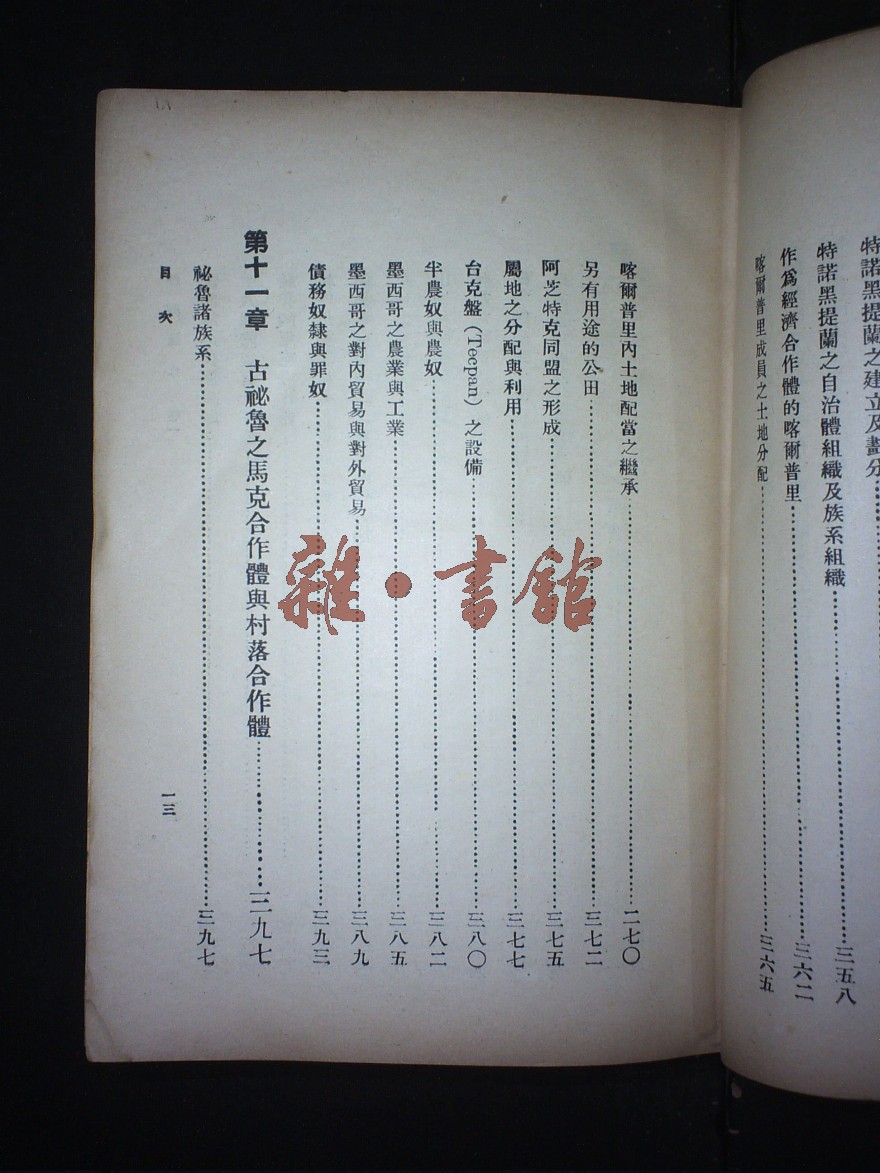 特諾黑提蘭之建立及劃分
特諾黑提蘭之自治體組織及族系組織……三五八
作爲經濟合作體的喀爾普里……三六二
喀爾普里成員之土地分配……三六五
喀爾普里內土地配當之繼承……二七〇
另有用途的公田……三七二
阿芝特克同盟之形成……三七五
屬地之分配與利用……三七七
台克盤（Tecpan）之設備……三八〇
半農奴與農奴……三八二
墨西哥之農業與工業……三八五
墨西哥之對內貿易與對外貿易……三八九
債務奴隸與罪奴……三九三
第十一章 古祕魯之馬克合作體與村落合作體……三九七
祕魯諸族系……三九七
目次
一三
雜·書館